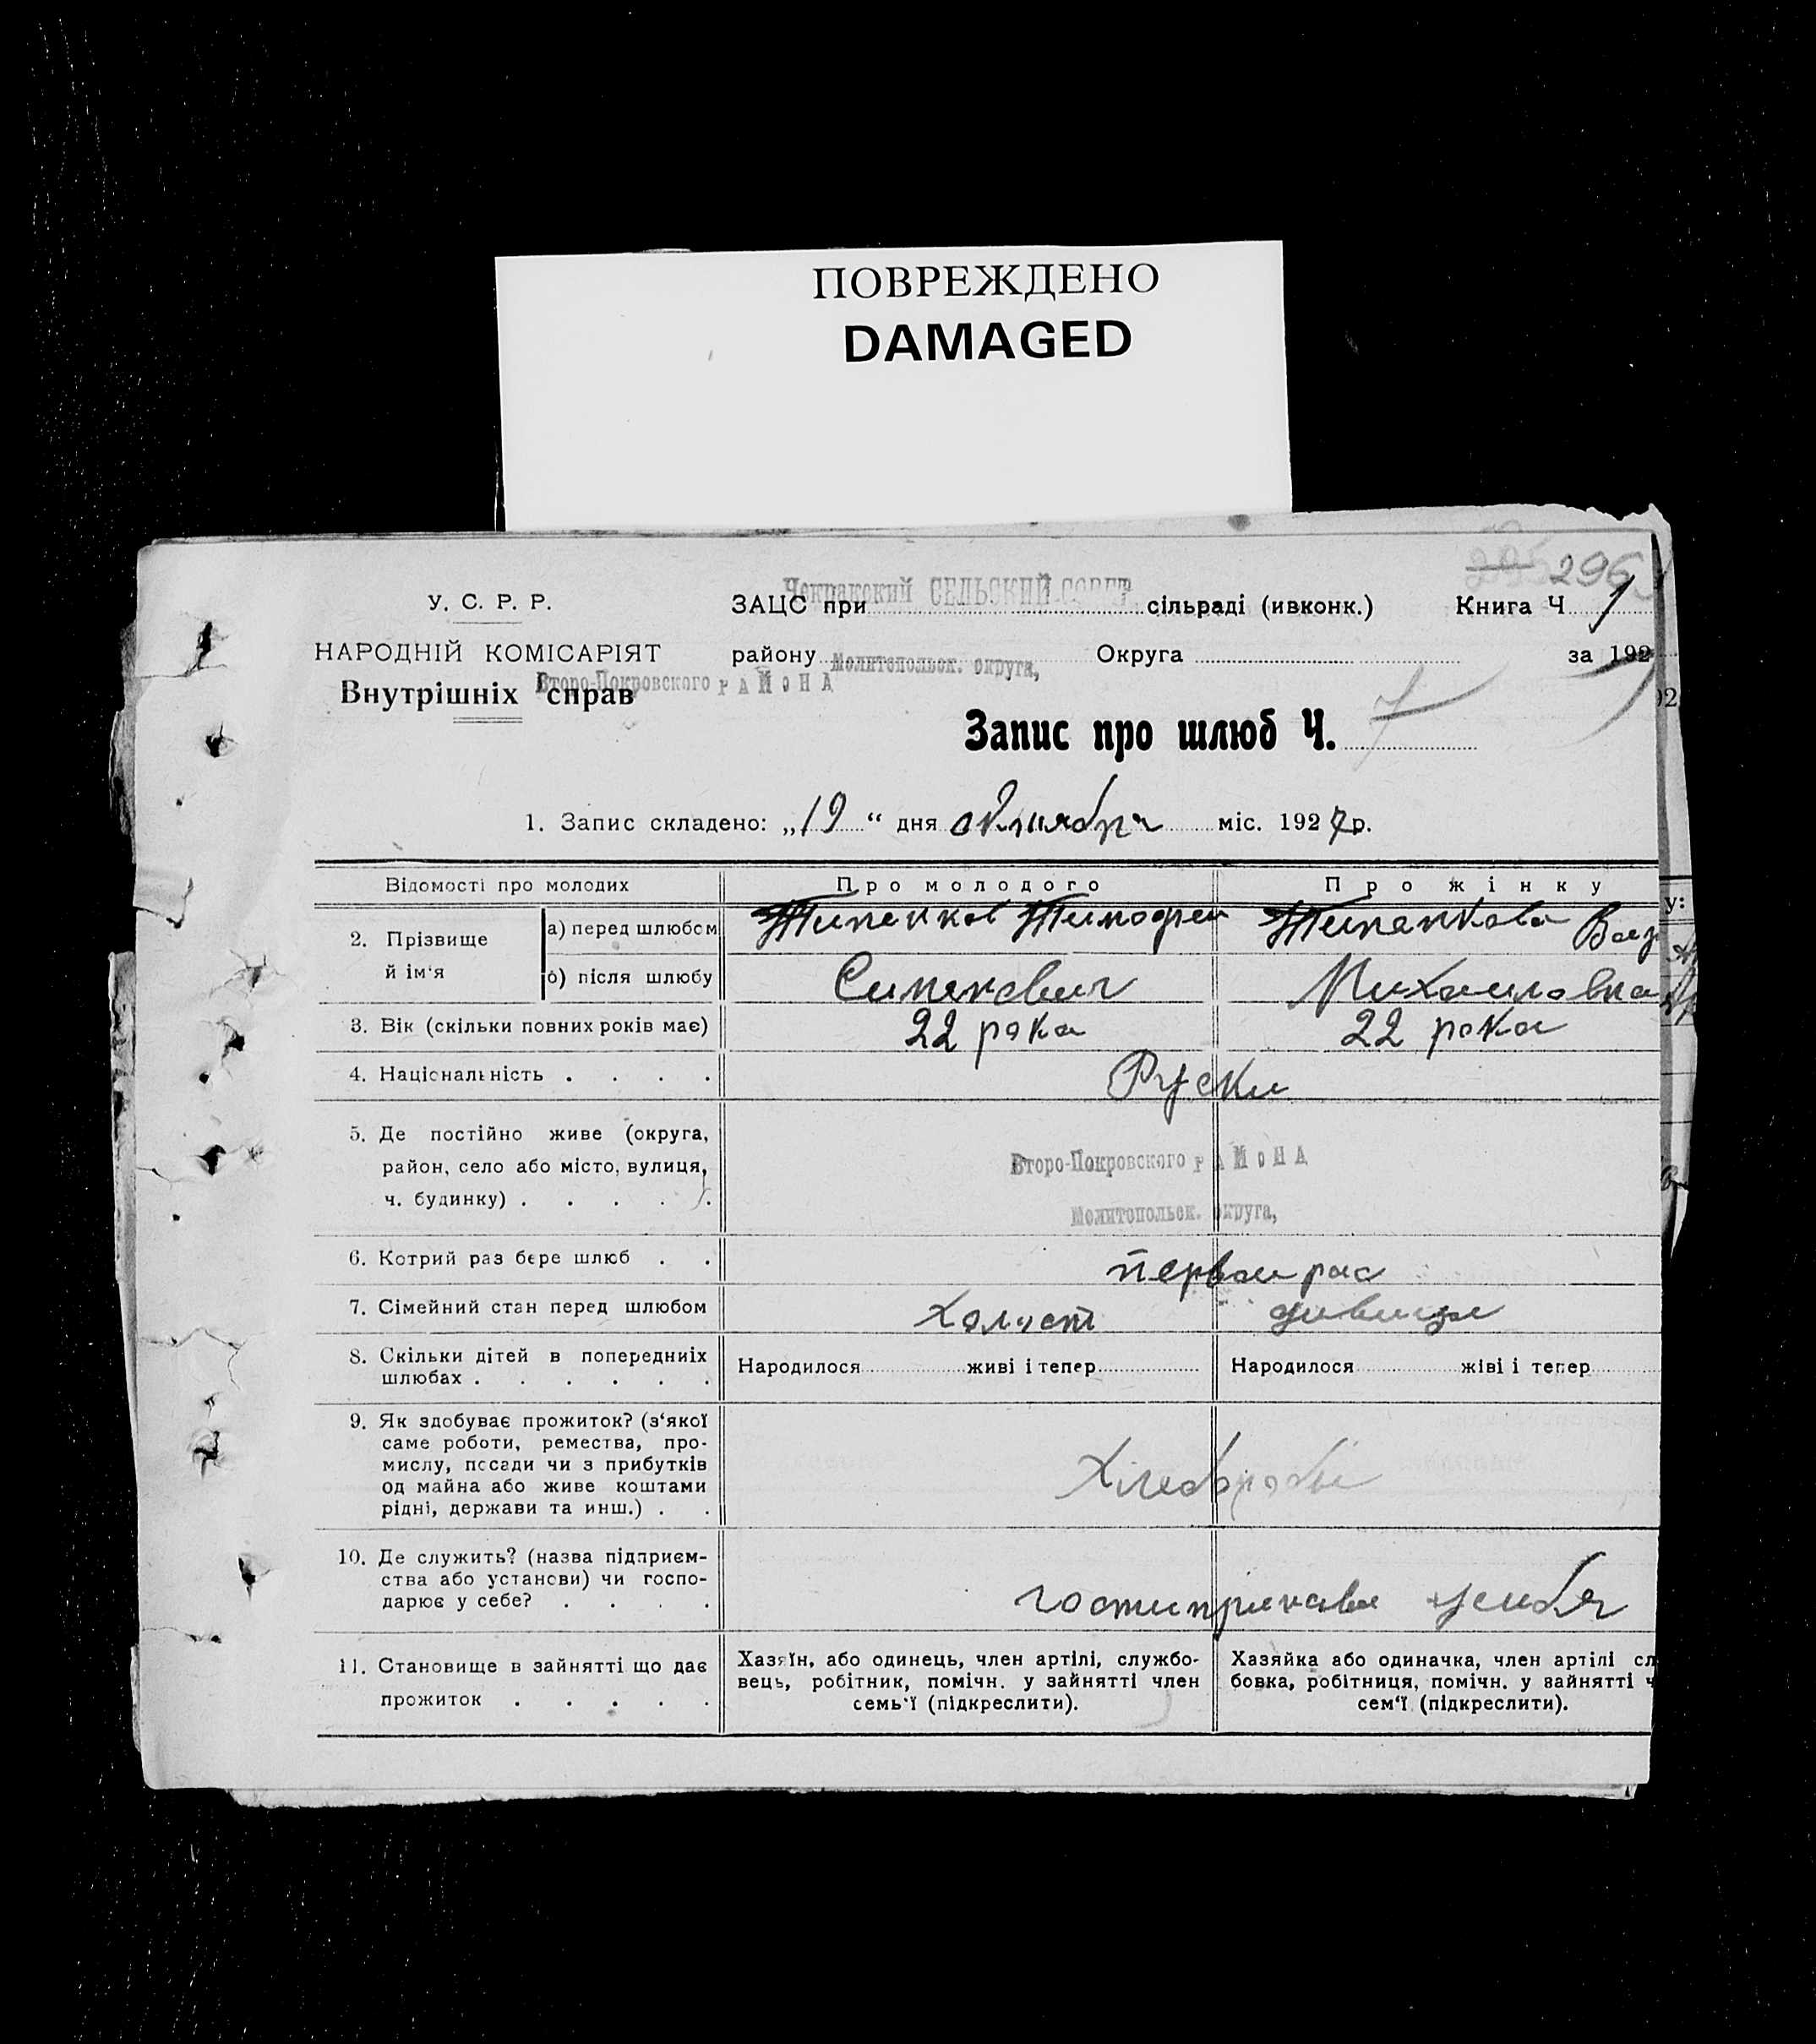 ПОВРЕЖДЕНО
DAMAGED
296
У. С. Р. Р.
НАРОДНІЙ КОМІСАРІЯТ
Внутрішніх справ
Второ-Покровского РАЙОНА
ЗАЦС при Чокракский СЕЛЬСКИЙ СОВЕТ сільраді (ивконк.) Книга Ч 1
району Мелитопольск. округа, Округа за 192
Запис про шлюб Ч. 7
1. Запис складено: „19“ дня октября міс. 1927 р.
Відомості про молодих Про молодого Про жінку
2. Прізвище й ім'я
а) перед шлюбом Типенков Тимофей Типенкова
б) після шлюбу Михаиловна
3. Вік (скільки повних років має) 22 рока 22 рока
4. Національність . . . . Руски
5. Де постійно живе (округа,
район, село або місто, вулиця,
ч. будинку) . . . . .
Второ-Покровского РАЙОНА
Мелитопольск. округа,
6. Котрий раз бере шлюб . . первои рас
7. Сімейний стан перед шлюбом холост
8. Скільки дітей в попередниіх
шлюбах . . . . . .
Народилося живі і тепер Народилося жіві і тепер
9. Як здобуває прожиток? (з'якої
саме роботи, ремества, про-
мислу, посади чи з прибутків
од майна або живе коштами
рідні, держави та инш.) . .
10. Де служить? (назва підприєм-
ства або установи) чи госпо-
дарює у себе? . . . .
11. Становище в зайнятті що дає
прожиток . . . . .
Хазяїн, або одинець, член артілі, службо-
вець, робітник, помічн. у зайнятті член
семь'ї (підкреслити).
Хазяйка або одиначка, член артілі сл
бовка, робітниця, помічн. у зайнятті ч
сем'ї (підкреслити).